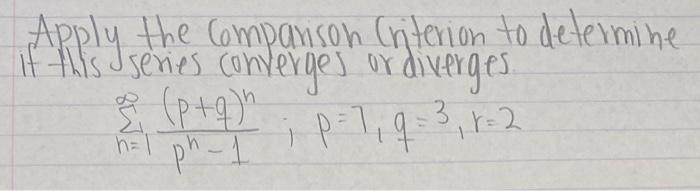 Apply the Comparison Criterion to determine
if this series converges or diverges.
∞
Σ (p+q)^n / p^n - 1 ; p=7, q=3, r=2
n=1